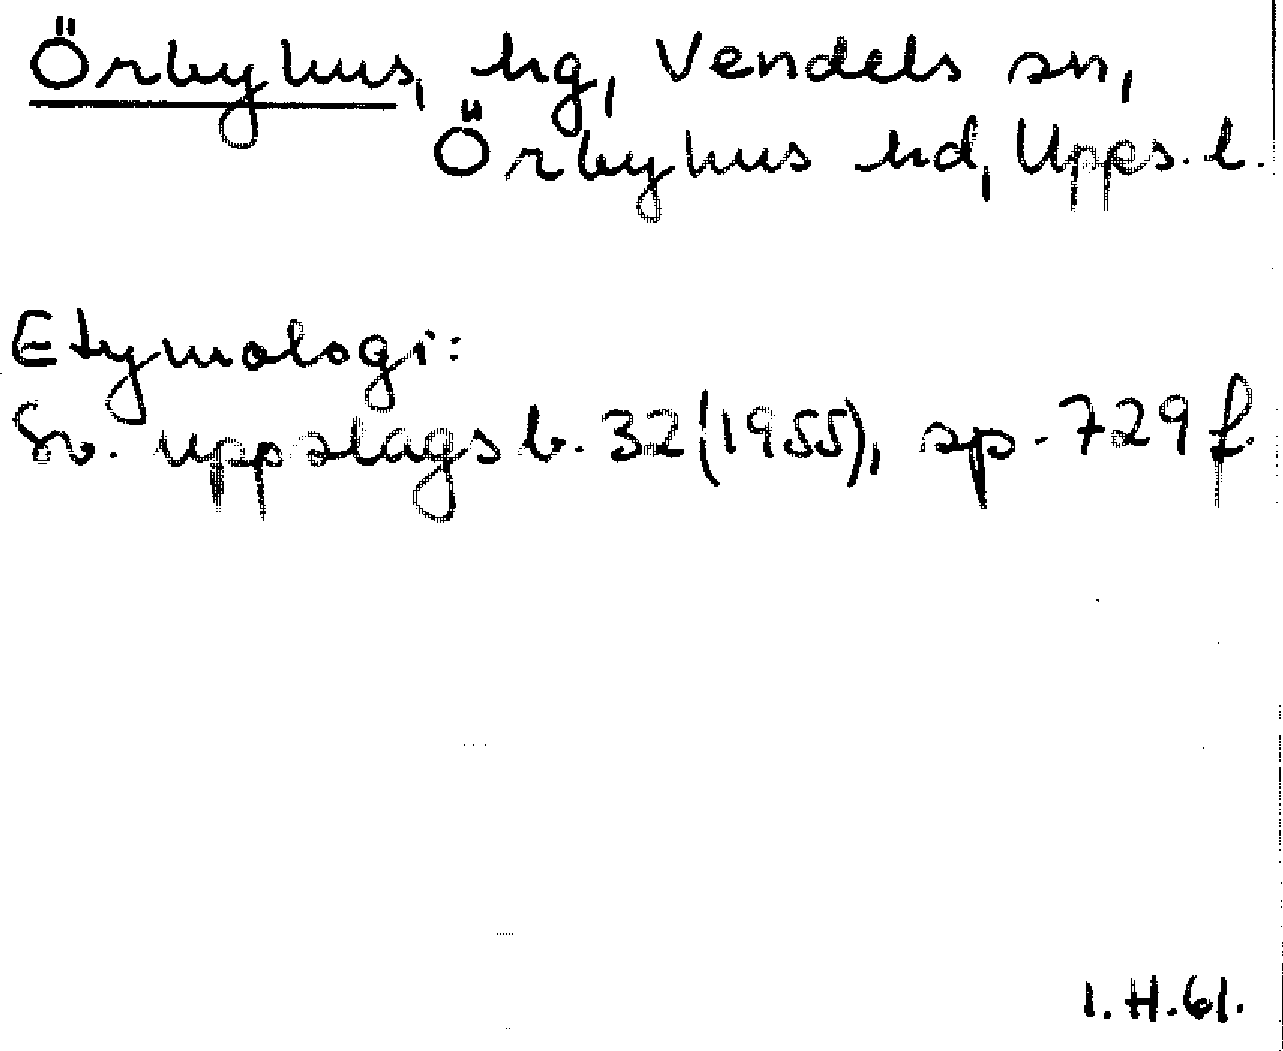 Örbyhus, hg, Vendels sn,
Örbyhus hd, Upps. l.
Etymologi:
Sv. uppslagsb. 32 (1955), sp. 729 f.
I. H. 61.